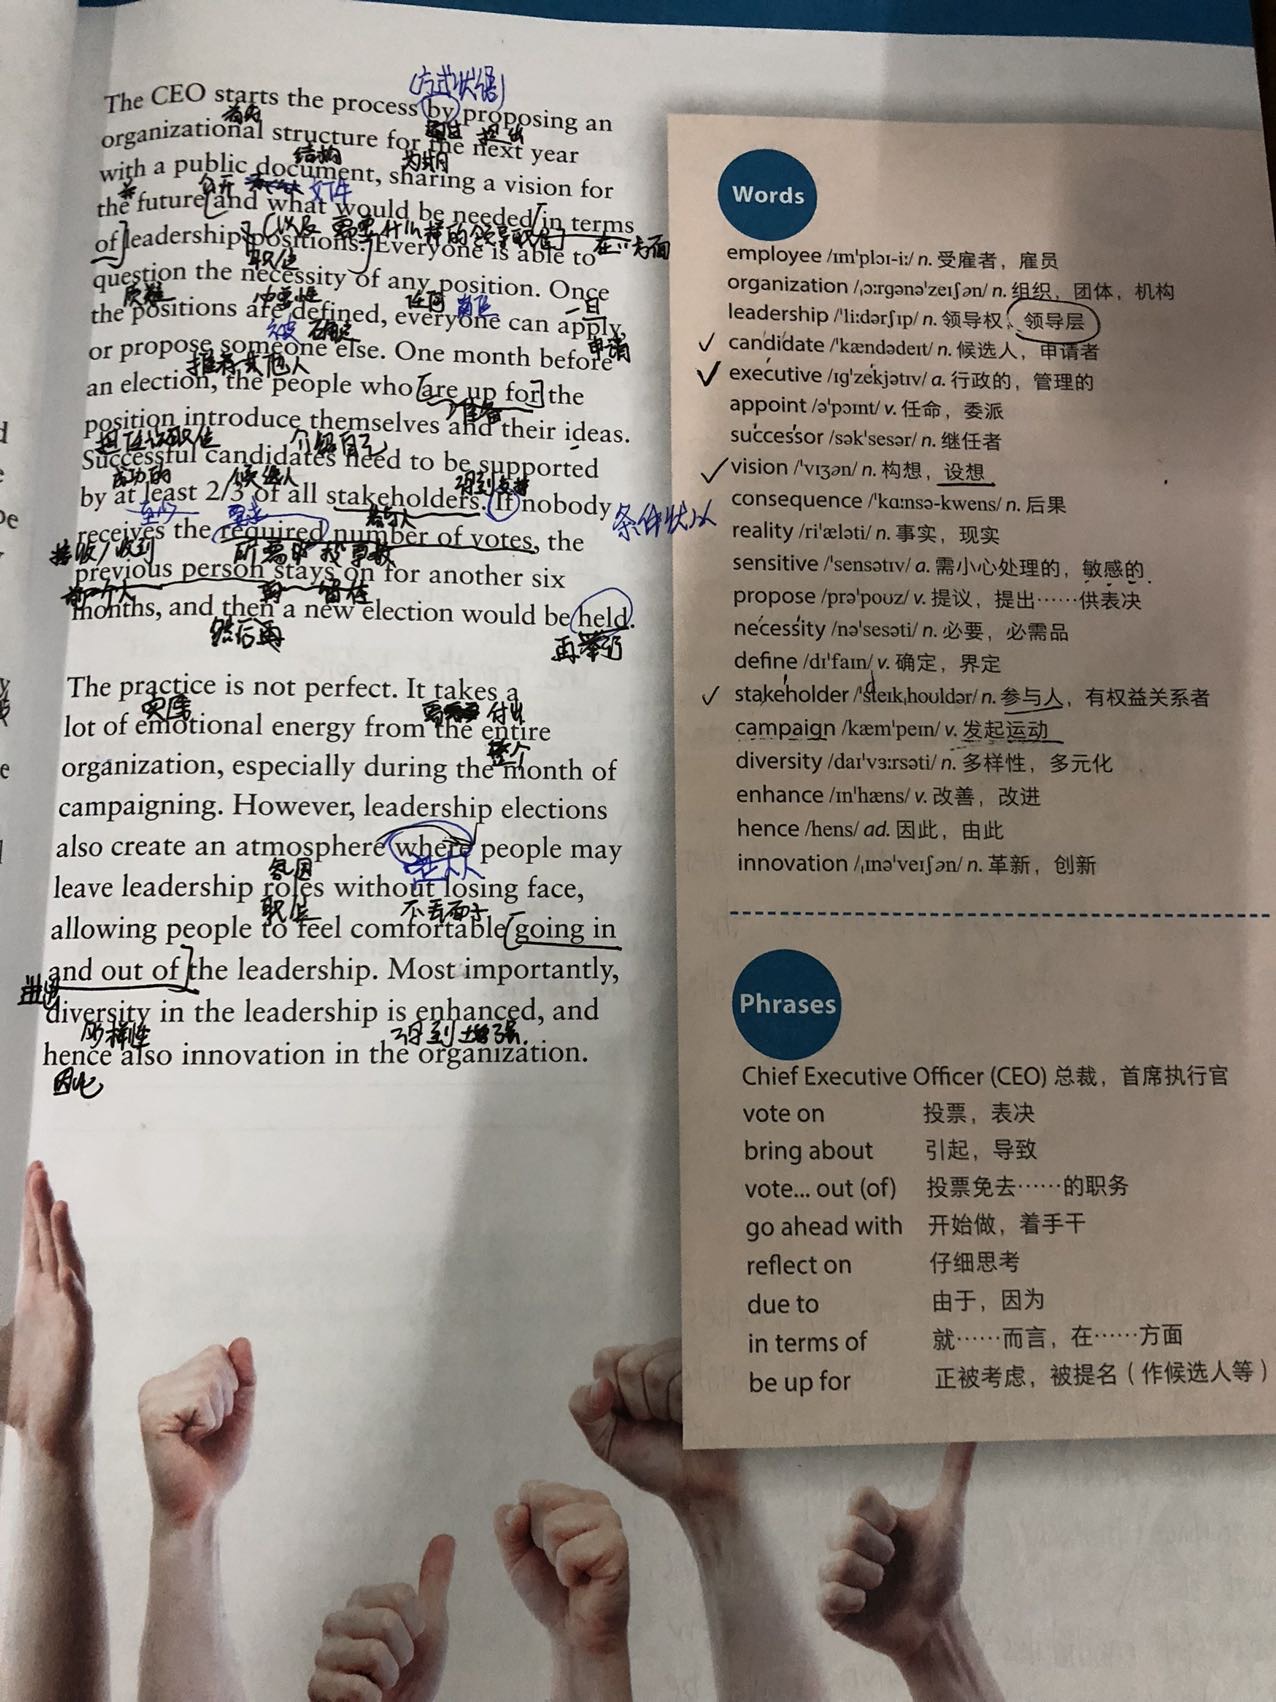 (方式状语)
The CEO starts the process by proposing an
首先
organizational structure for the next year
通过 提出
结构 为期
with a public document, sharing a vision for
公开 文件
the future and what would be needed in terms
(以及需要什么样的领导职位) 在…方面
of leadership positions. Everyone is able to
职位
question the necessity of any position. Once
质疑 必要性 任何 一旦
the positions are defined, everyone can apply,
被 确定 申请
or propose someone else. One month before
推荐其他人
an election, the people who are up for the
准备
position introduce themselves and their ideas.
担任该职位 介绍自己
Successful candidates need to be supported
成功的 候选人 得到支持
by at least 2/3 of all stakeholders. If nobody
至少 参与人 条件状从
receives the required number of votes, the
接收/收到 所需的投票数
previous person stays on for another six
前一个人 再 留任
months, and then a new election would be held.
然后再 再举行
The practice is not perfect. It takes a
实席 付出
lot of emotional energy from the entire
整个
organization, especially during the month of
campaigning. However, leadership elections
also create an atmosphere where people may
氛围
leave leadership roles without losing face,
职位 不丢面子
allowing people to feel comfortable going in
and out of the leadership. Most importantly,
进出
diversity in the leadership is enhanced, and
多样性 得到增强
hence also innovation in the organization.
因此
Words
employee /ɪmˈplɔɪ-iː/ n. 受雇者，雇员
organization /ˌɔːrgənəˈzeɪʃən/ n. 组织，团体，机构
leadership /ˈliːdərʃɪp/ n. 领导权，领导层
✓ candidate /ˈkændədeɪt/ n. 候选人，申请者
✓ executive /ɪgˈzekjətɪv/ a. 行政的，管理的
appoint /əˈpɔɪnt/ v. 任命，委派
successor /səkˈsesər/ n. 继任者
✓ vision /ˈvɪʒən/ n. 构想，设想
consequence /ˈkɑːnsə-kwens/ n. 后果
reality /riˈæləti/ n. 事实，现实
sensitive /ˈsensətɪv/ a. 需小心处理的，敏感的
propose /prəˈpoʊz/ v. 提议，提出……供表决
necessity /nəˈsesəti/ n. 必要，必需品
define /dɪˈfaɪn/ v. 确定，界定
✓ stakeholder /ˈsteɪkˌhoʊldər/ n. 参与人，有权益关系者
campaign /kæmˈpeɪn/ v. 发起运动
diversity /daɪˈvɜːrsəti/ n. 多样性，多元化
enhance /ɪnˈhæns/ v. 改善，改进
hence /hens/ ad. 因此，由此
innovation /ˌɪnəˈveɪʃən/ n. 革新，创新
Phrases
Chief Executive Officer (CEO) 总裁，首席执行官
vote on 投票，表决
bring about 引起，导致
vote... out (of) 投票免去……的职务
go ahead with 开始做，着手干
reflect on 仔细思考
due to 由于，因为
in terms of 就……而言，在……方面
be up for 正被考虑，被提名（作候选人等）